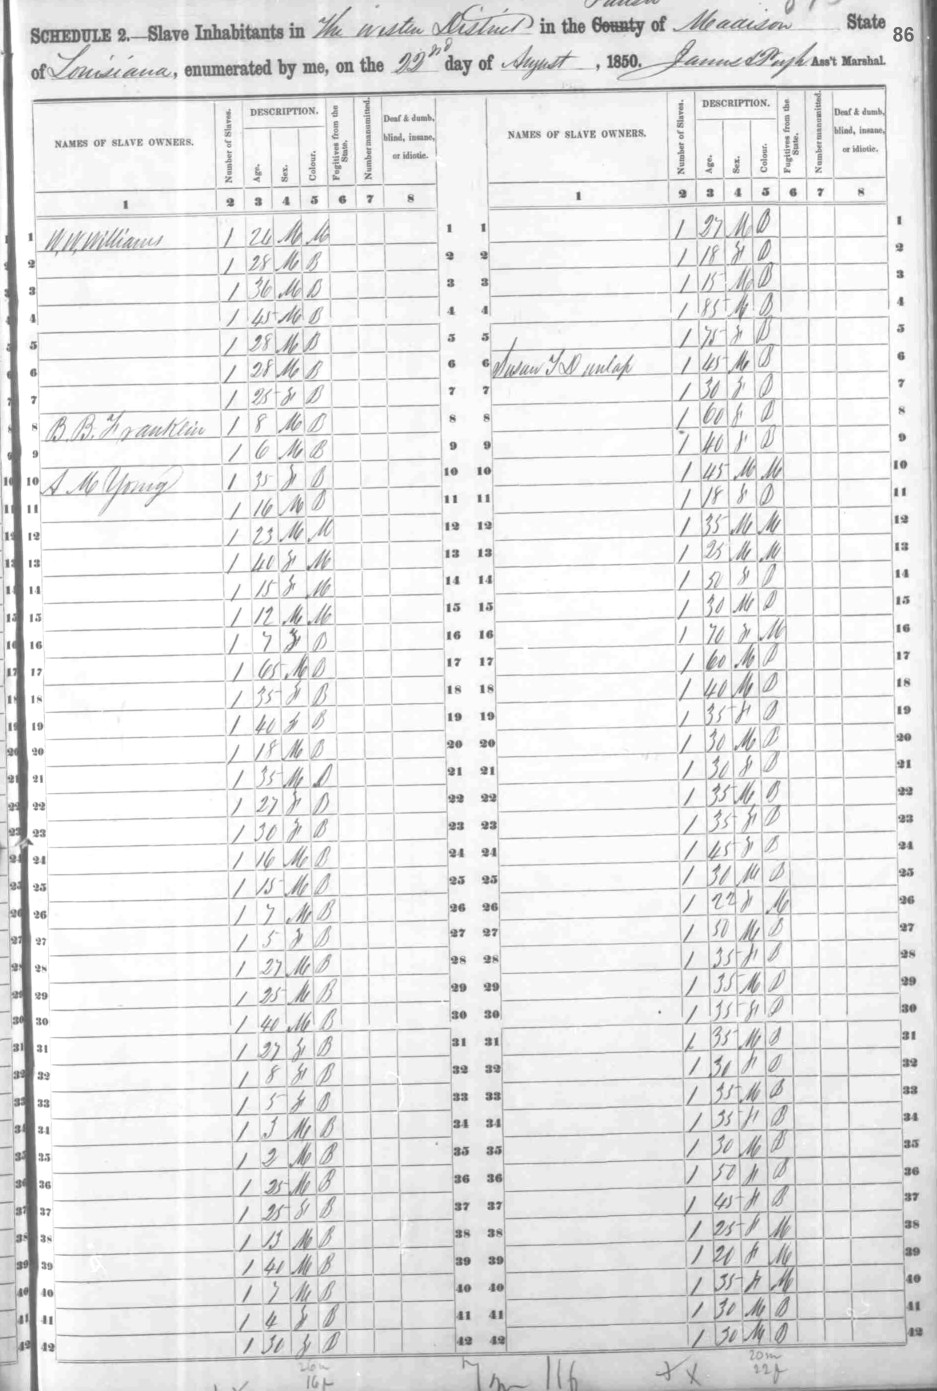 Parish
SCHEDULE 2.—Slave Inhabitants in The western District in the County of Maddison State 86
of Louisiana, enumerated by me, on the 22nd day of August, 1850. Ass't Marshal.
NAMES OF SLAVE OWNERS. Number of Slaves. DESCRIPTION. Age. Sex. Colour. Fugitives from the State. Number manumitted. Deaf & dumb, blind, insane, or idiotic. NAMES OF SLAVE OWNERS. Number of Slaves. DESCRIPTION. Age. Sex. Colour. Fugitives from the State. Number manumitted. Deaf & dumb, blind, insane, or idiotic.
1 2 3 4 5 6 7 8 1 2 3 4 5 6 7 8
1 W. W. Williams 1 26 M M 1 1 1 27 M B 1
2 1 28 M B 2 2 1 18 F B 2
3 1 36 M B 3 3 1 15 M B 3
4 1 45 M B 4 4 1 85 M B 4
5 1 28 M B 5 5 1 75 F B 5
6 1 28 M B 6 6 Susan T Dunlap 1 45 M B 6
7 1 25 F B 7 7 1 30 F B 7
8 B. B. Franklin 1 8 M B 8 8 1 60 F B 8
9 1 6 M B 9 9 1 40 F B 9
10 A M Young 1 35 F B 10 10 1 45 M M 10
11 1 16 M B 11 11 1 18 F B 11
12 1 23 M M 12 12 1 35 M M 12
13 1 40 F M 13 13 1 25 M M 13
14 1 15 F M 14 14 1 50 F B 14
15 1 12 M M 15 15 1 30 M B 15
16 1 7 F B 16 16 1 70 F M 16
17 1 65 M B 17 17 1 60 M B 17
18 1 35 F B 18 18 1 40 M B 18
19 1 40 F B 19 19 1 35 F B 19
20 1 18 M B 20 20 1 30 M B 20
21 1 35 M B 21 21 1 30 F B 21
22 1 27 F B 22 22 1 35 M B 22
23 1 30 F B 23 23 1 35 F B 23
24 1 16 M B 24 24 1 45 F B 24
25 1 15 M B 25 25 1 30 M B 25
26 1 7 M B 26 26 1 22 F M 26
27 1 5 F B 27 27 1 50 M B 27
28 1 27 M B 28 28 1 35 F B 28
29 1 25 M B 29 29 1 35 M B 29
30 1 40 M B 30 30 1 35 F B 30
31 1 27 F B 31 31 1 35 M B 31
32 1 8 F B 32 32 1 30 F B 32
33 1 5 F B 33 33 1 35 M B 33
34 1 3 M B 34 34 1 35 F B 34
35 1 2 M B 35 35 1 30 M B 35
36 1 25 M B 36 36 1 50 F B 36
37 1 25 F B 37 37 1 45 F B 37
38 1 13 M B 38 38 1 25 F M 38
39 1 40 M B 39 39 1 20 F M 39
40 1 7 M B 40 40 1 35 F M 40
41 1 4 F B 41 41 1 30 M B 41
42 1 30 F B 42 42 1 30 M B 42
26m 20m
16f 116 22f